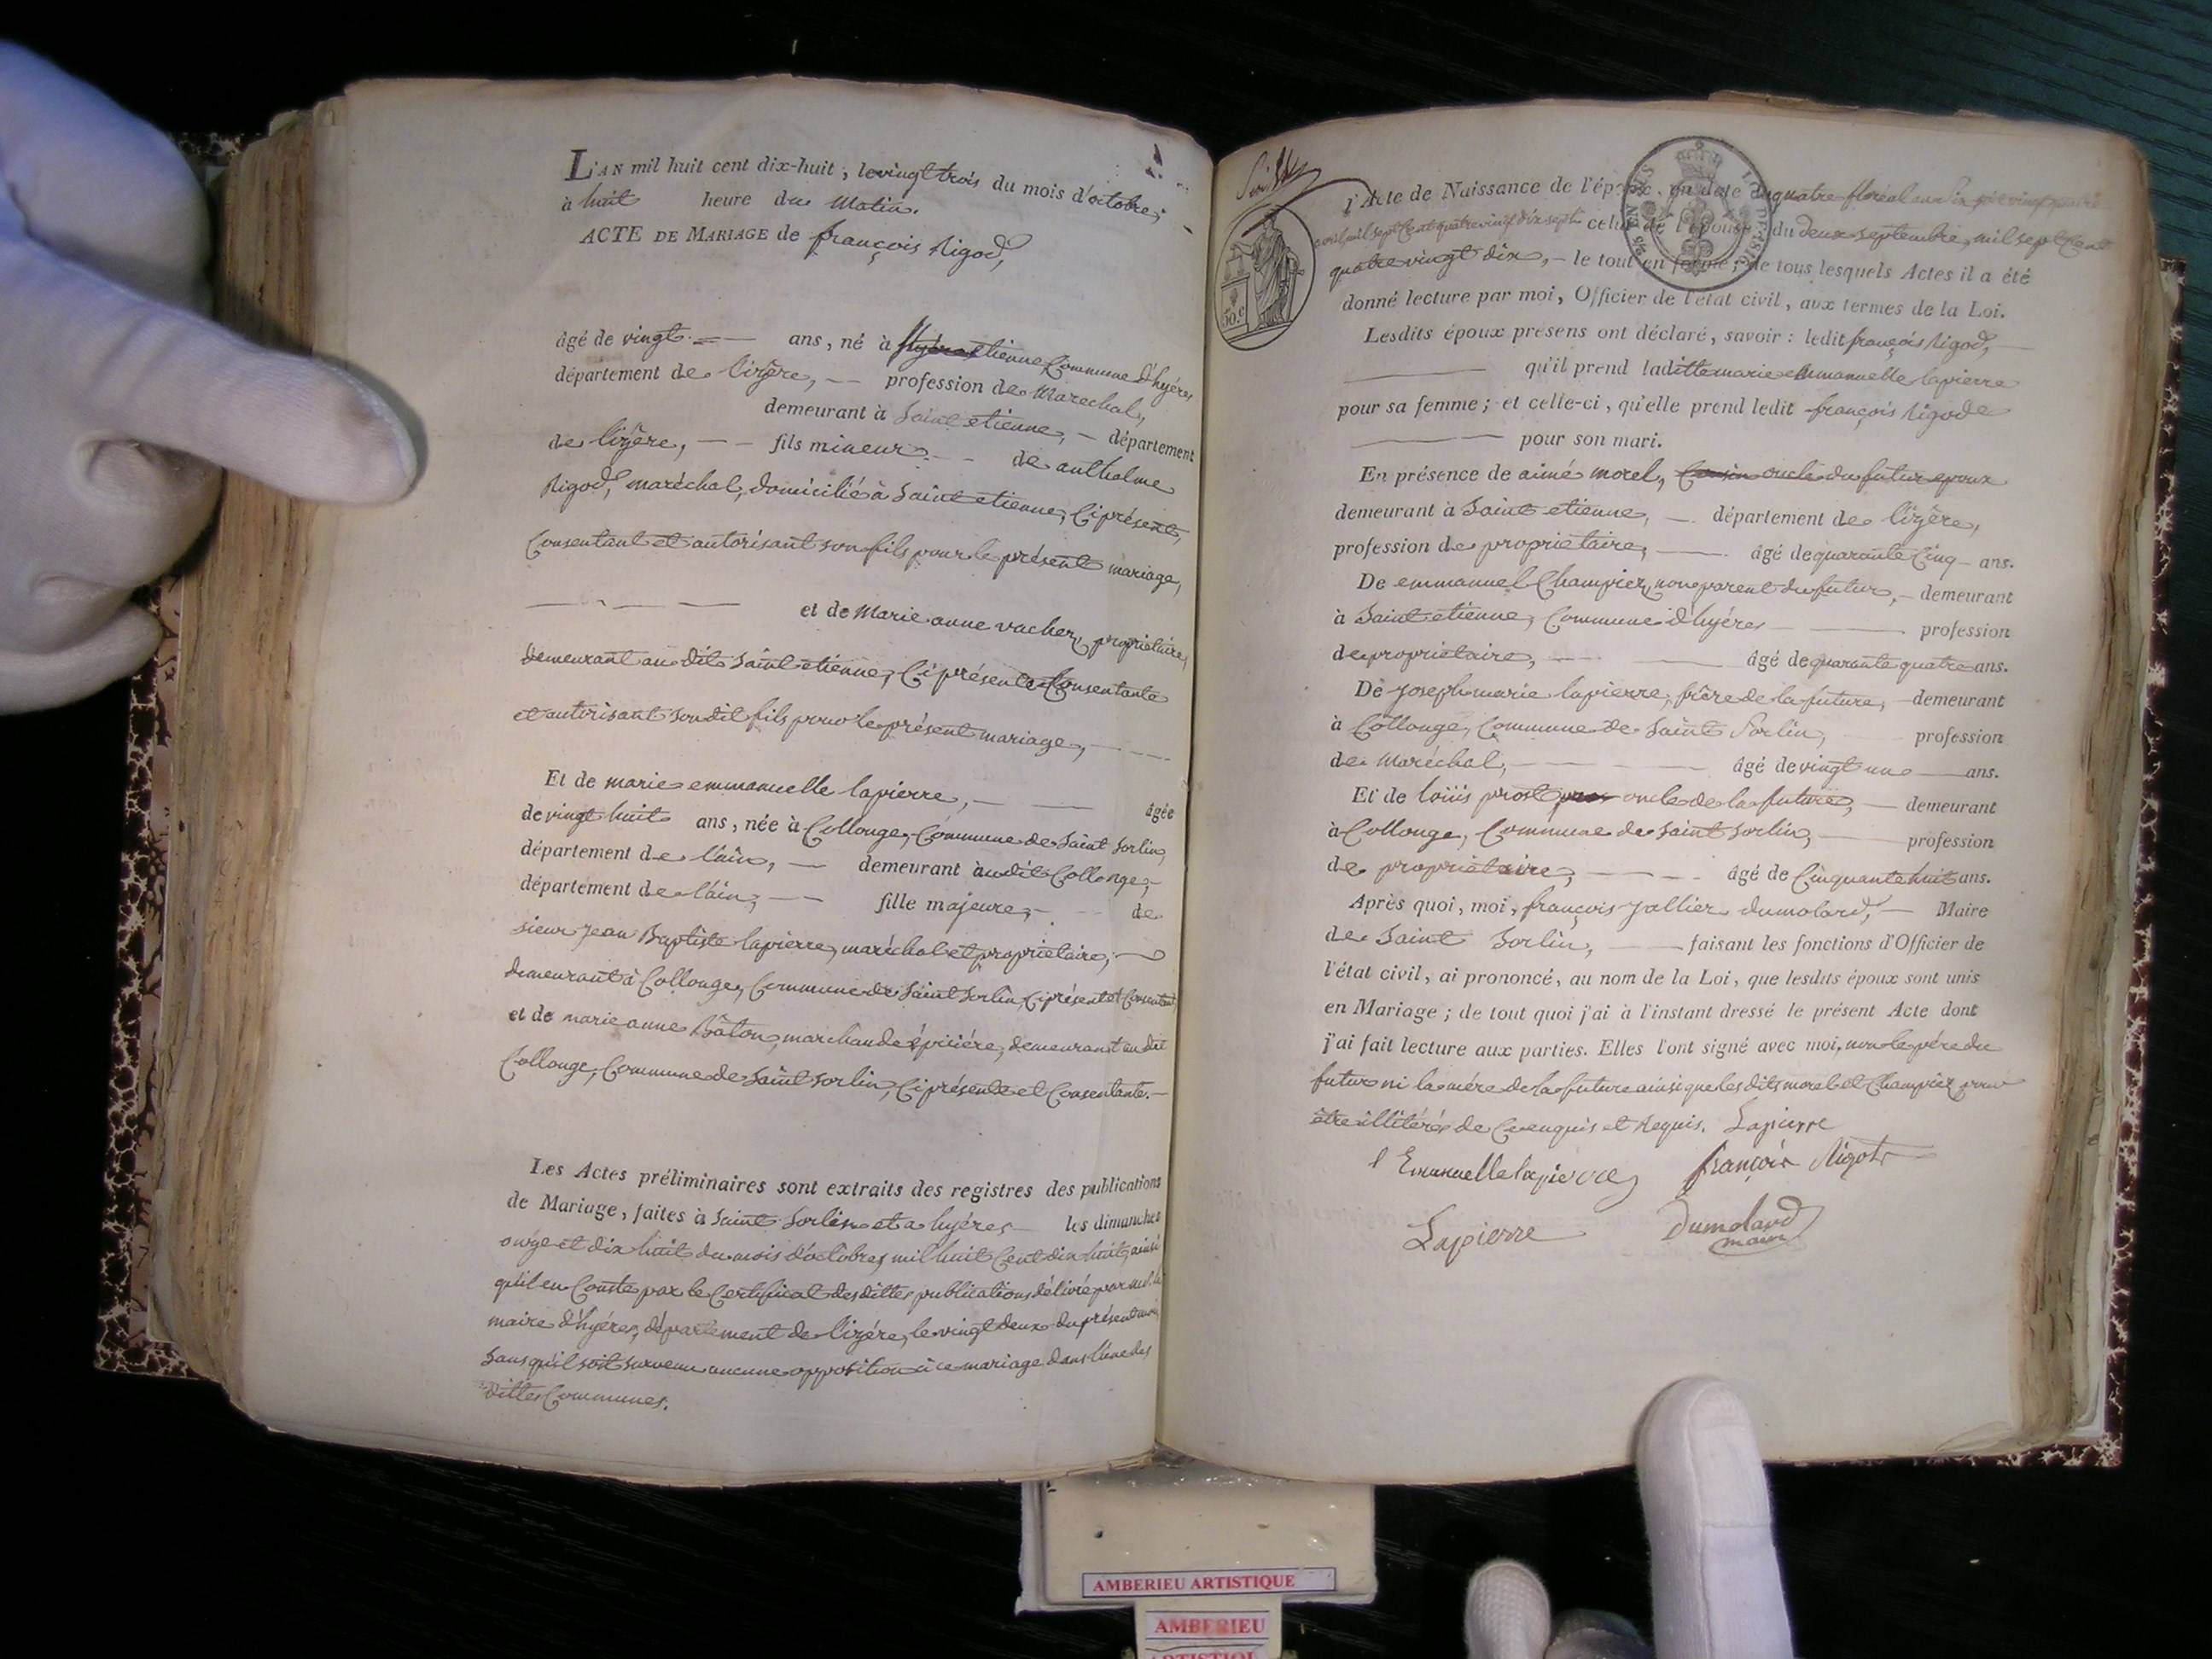 L'AN mil huit cent dix-huit, le vingt trois du mois d'octobre,
à huit heure du matin.
ACTE DE MARIAGE de françois Rigod,
âgé de vingt ans, né à Etienne Commune d'hyéres
département de l'izère, profession de Marechal,
demeurant à Saint etienne, département
de l'izère, fils mineur de anthelme
Rigod, maréchal, domicilié à Saint etienne, Ci présent,
Consentant et autorisant son fils pour le présent mariage,
et de Marie anne vacher, propriétaire,
demeurant au dit Saint etienne, Ci présente Consentante
et autorisant son dit fils pour le présent mariage,
Et de marie emmanuelle lapierre, âgée
de vingt huit ans, née à Collonge, Commune de Saint Sorlin,
département de l'ain, demeurant audit Collonge,
département de l'ain, fille majeure, de
sieur Jean Baptiste lapierre, maréchal et propriétaire,
demeurant à Collonge, Commune de Saint Sorlin, Ci présent et Consentant,
et de marie anne Bâton, marchande épiciére, demeurant au dit
Collonge, Commune de Saint Sorlin, Ci présente et Consentante.
Les Actes préliminaires sont extraits des registres des publications
de Mariage, faites à Saint Sorlin et a hyéres les dimanches
onze et dix huit du mois d'octobre, mil huit Cent dix huit, ainsi
qu'il en Conste par le Certificat des dittes publications délivré par
maire d'hyéres, département de l'izére, le vingt deux du présent mois
sans qu'il soit survenu aucune opposition à ce mariage dans l'une des
dittes Communes.
l'Acte de Naissance de l'époux, en date du quatre floréal an
avril mil sept Cent quatre vingt dix sept celui de l'épouse, du deux septembre, mil sept Cent
quatre vingt dix, le tout en forme; de tous lesquels Actes il a été
50. c
donné lecture par moi, Officier de l'état civil, aux termes de la Loi.
Lesdits époux présens ont déclaré, savoir: ledit françois Rigod,
qu'il prend laditte marie emmanuelle lapierre
pour sa femme; et celle-ci, qu'elle prend ledit françois Rigod
pour son mari.
En présence de aimé morel, Cousin oncle du futur epoux
demeurant à Saint etienne, département de l'izère,
profession de proprietaire, âgé de quarante Cinq ans.
De emmanuel Champiez, non parent du futur, demeurant
à Saint etienne, Commune d'hyéres profession
de proprietaire, âgé de quarante quatre ans.
De Joseph marie lapierre, frère de la future, demeurant
à Collonge, Commune de Saint Sorlin, profession
de maréchal, âgé de vingt un ans.
Et de loüis prost oncle de la future, demeurant
à Collonge, Commune de Saint Sorlin, profession
de propriétaire, âgé de Cinquante huit ans.
Après quoi, moi, françois Jallier dumolard, Maire
de Saint Sorlin, faisant les fonctions d'Officier de
l'état civil, ai prononcé, au nom de la Loi, que lesdits époux sont unis
en Mariage; de tout quoi j'ai à l'instant dressé le présent Acte dont
j'ai fait lecture aux parties. Elles l'ont signé avec moi, non le pére du
futur ni la mére de la future ainsi que les dits morel et Champiez pour
être illitérés de Ce enquis et Requis. Lapierre
Emanuelle lapierre françois Rigot
Lapierre Dumolard
maire
AMBERIEU ARTISTIQUE
AMBERIEU
ARTISTIQUE